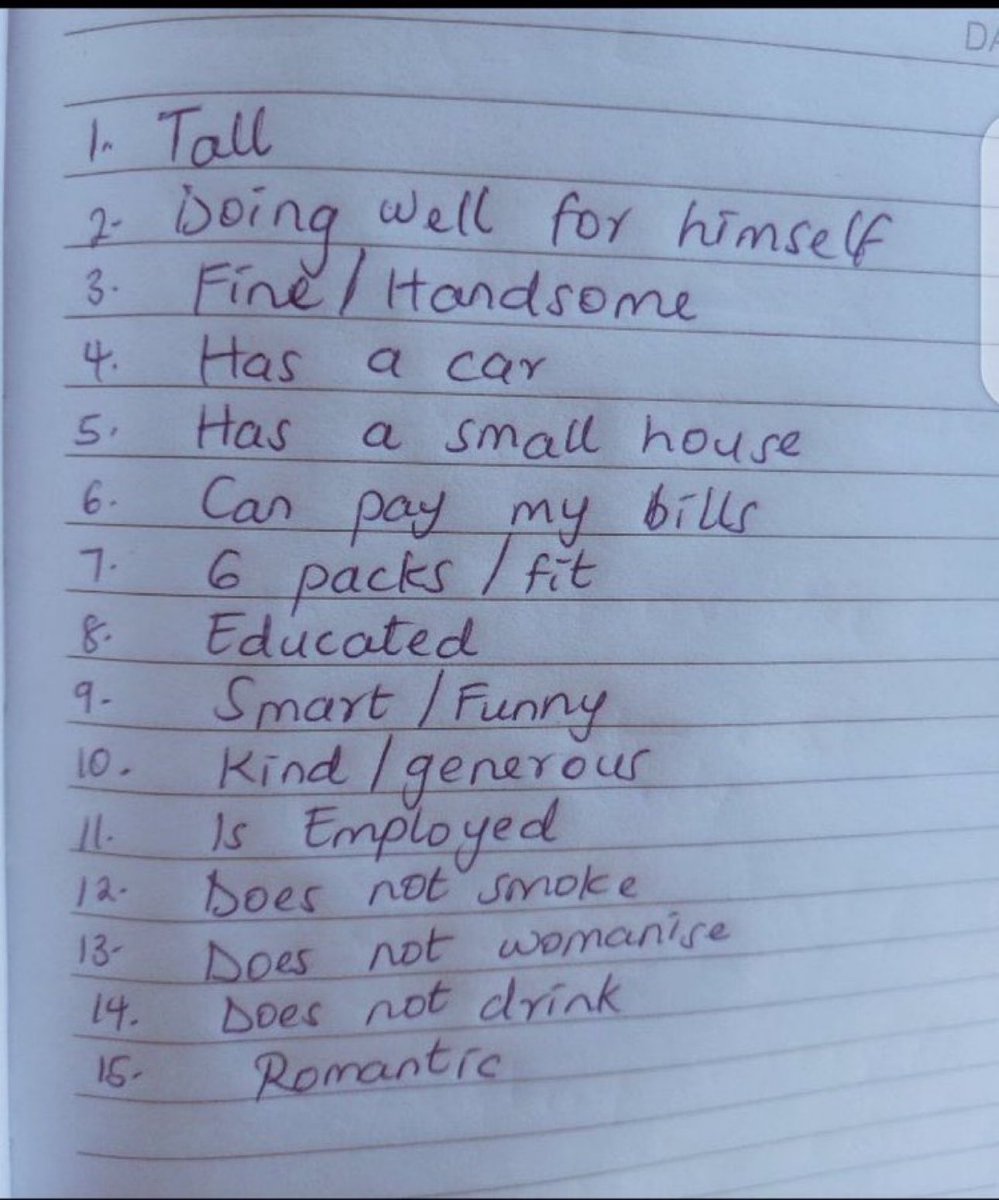 DA
1. Tall
2- Doing well for himself
3. Fine / Handsome
4. Has a car
5. Has a small house
6. Can pay my bills
7. 6 packs / fit
8. Educated
9- Smart / Funny
10. Kind / generous
11. Is Employed
12. Does not smoke
13- Does not womanise
14. Does not drink
15. Romantic